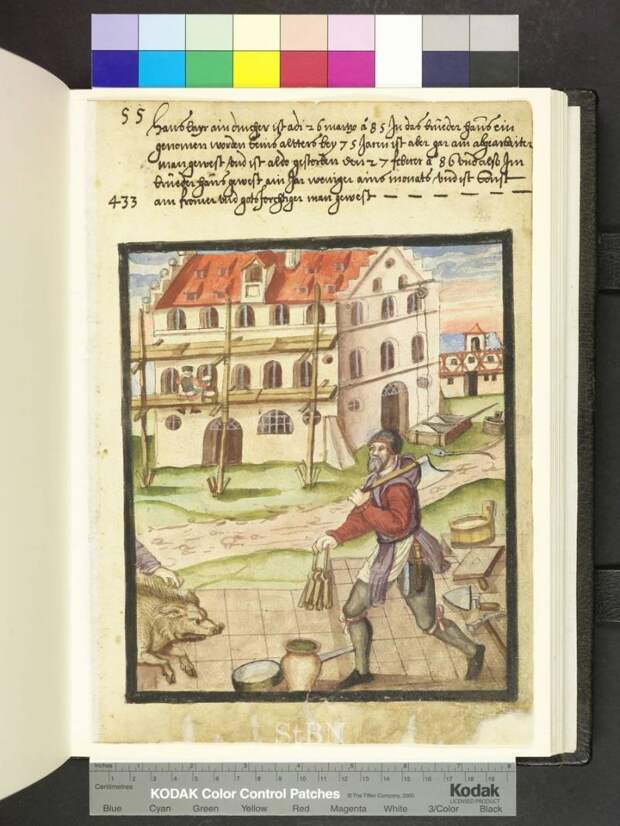 55
Hans bayr ain dincher ist adi 26 martzo a 85 In das brueder haus ein
genomen worden seins altters bey 75 Jaren ist aber gar ain abgearbeiter
man gewest und ist also gestorben den 27 febrer a 86 und also Im
brueder haus gewest ain Jar weniger ains monats und ist sonst
433 ain fromer und gots forchtiger man gewest
StBN
Inches 1 2 3 4 5 6 7 8
Centimetres
KODAK Color Control Patches © The Tiffen Company, 2000
Kodak
LICENSED PRODUCT
Blue Cyan Green Yellow Red Magenta White 3/Color Black